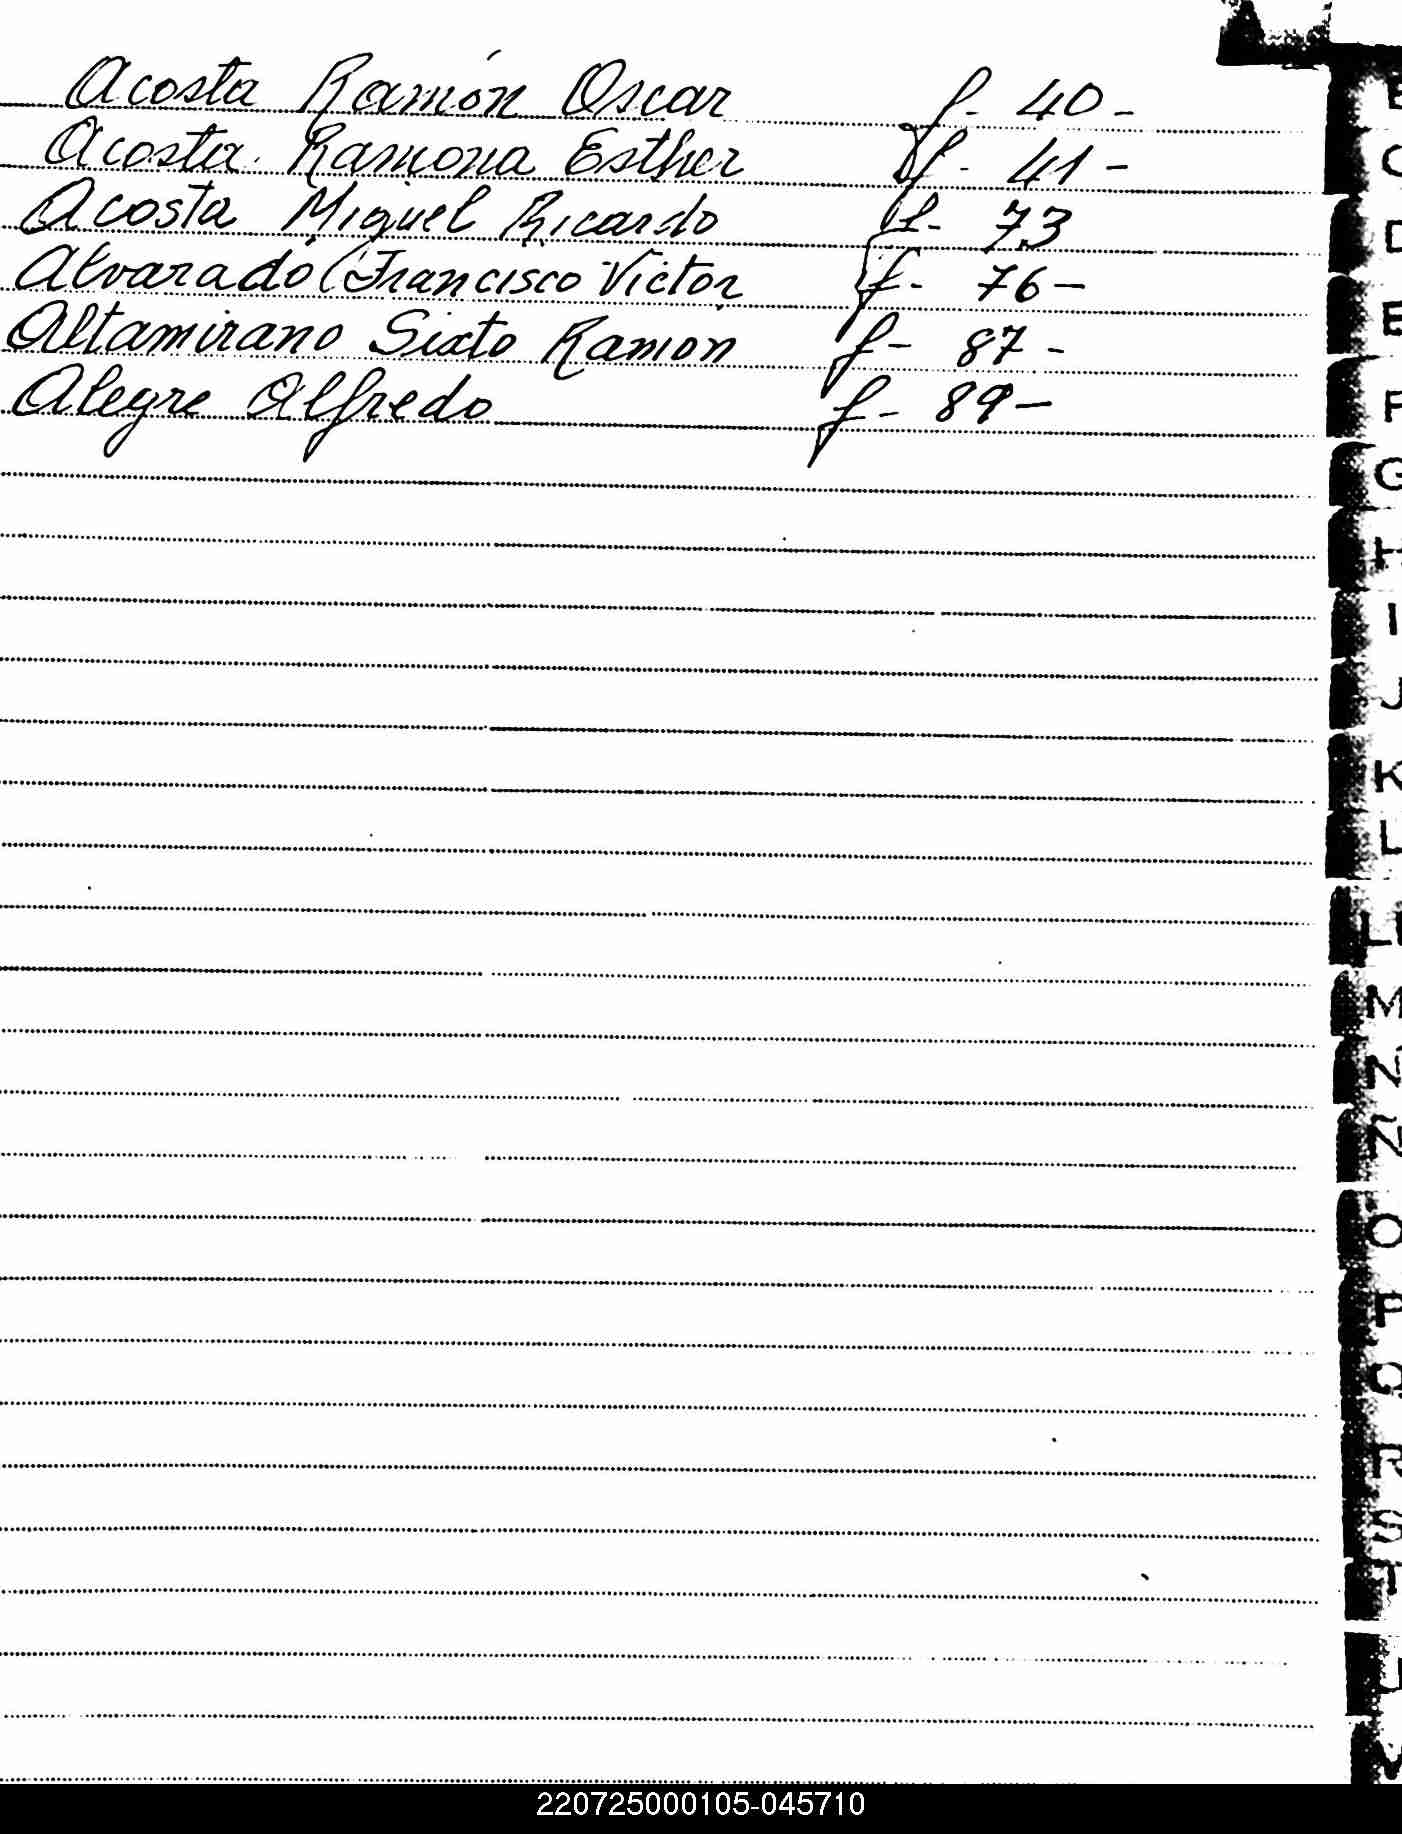 Acosta Ramón Oscar f- 40-
Acosta Ramona Esther f- 41-
Acosta Miguel Ricardo f- 73
Alvarado Francisco Victor f- 76-
Altamirano Sixto Ramon f- 87-
Alegre Alfredo f- 89-
B
C
D
E
F
G
H
I
J
K
L
LL
M
N
Ñ
O
P
Q
R
S
T
U
V
220725000105-045710